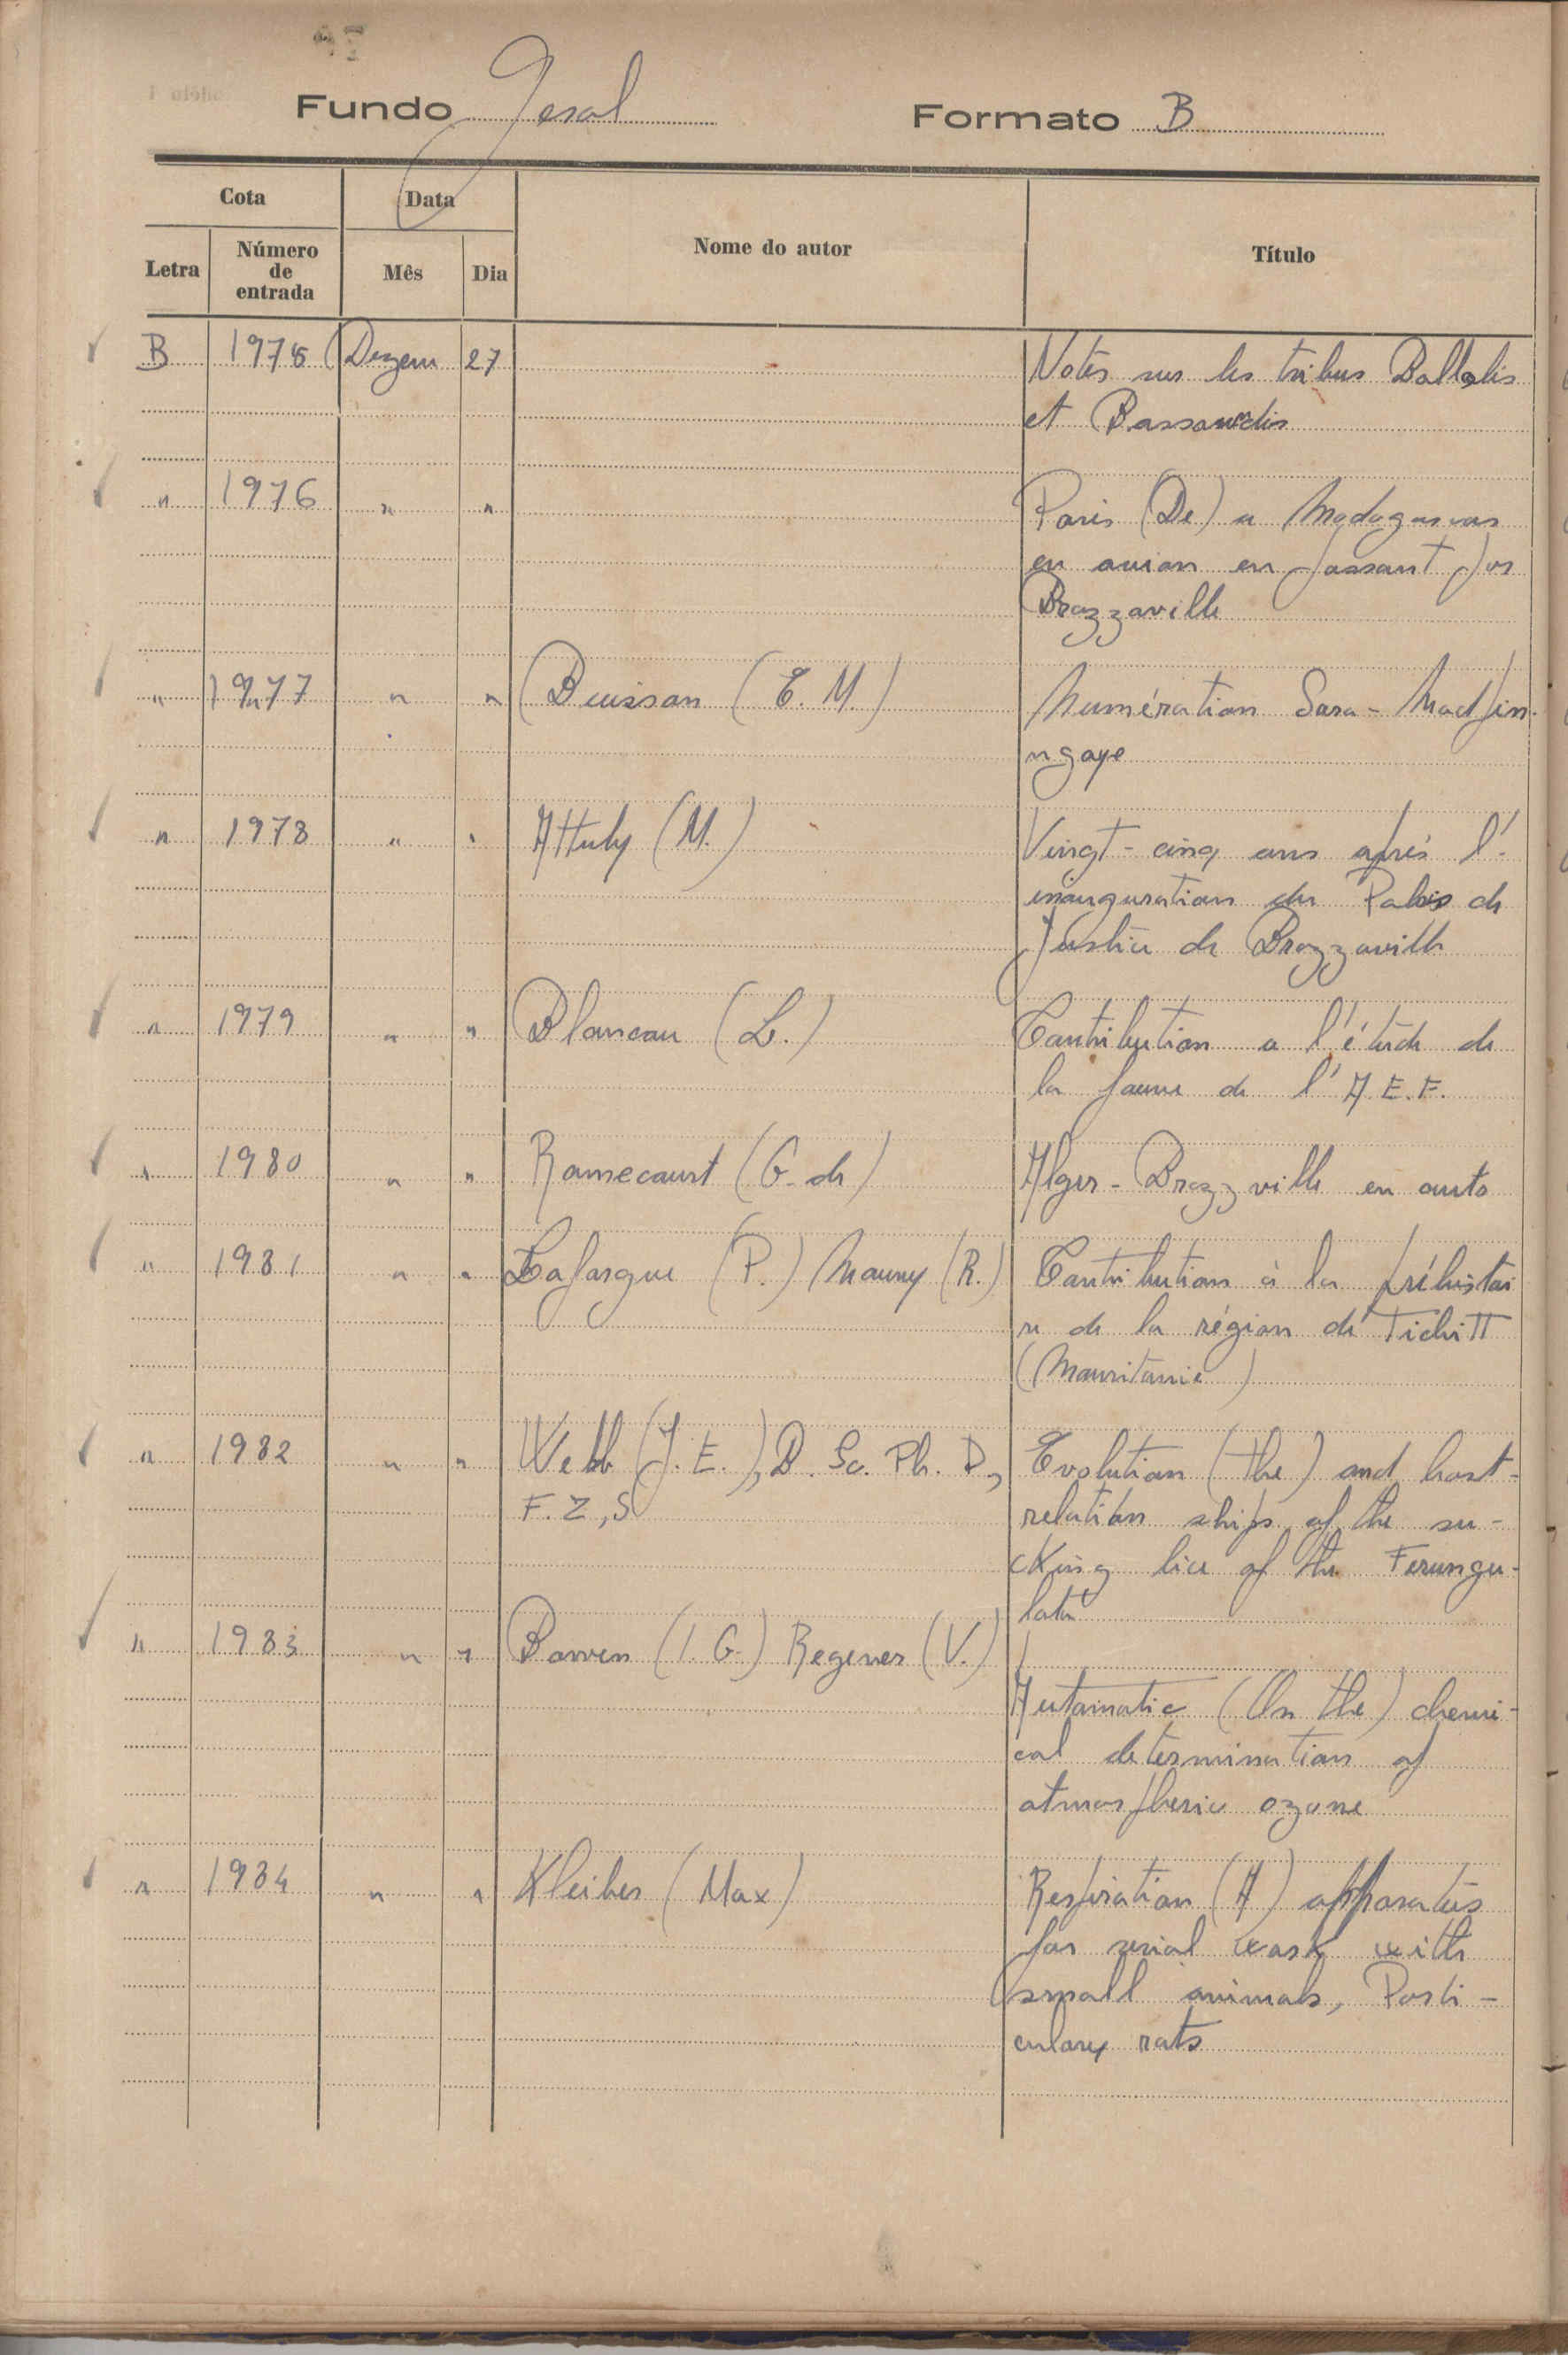 Fundo Geral Formato B
Cota Data Nome do autor Título
Letra Número de entrada Mês Dia
B 1975 Dezem 27 Notes sur les tribus Ballalis
et Bassoundis
" 1976 " " Paris (De) a Madagascar
en avion en passant por
Brazzaville
" 1977 " " Buisson (E. M.) Numération Sara-Madjin-
ngaye
" 1978 " " Attuly (M.) Vingt-cinq ans aprés l'-
inauguration du Palais de
Justice de Brazzaville
" 1979 " " Blancou (L.) Contribution a l'étude de
la faune de l'A.E.F.
" 1980 " " Ramecourt (G. de) Alger-Brazzville en auto
" 1981 " " Laforgue (P.) Mauny (R.) Contribution à la préhistoi
re de la région de Tichitt
(Mauritanie)
" 1982 " " Webb (J. E.), D. Sc. Ph. D, Evolution (the) and host-
F. Z, S relation ships of the su-
cking lice of the Ferungu-
lata
" 1983 " " Bowen (I. G.) Regener (V.)
Automatic (On the) chemi-
cal determination of
atmospheric ozone
" 1984 " " Kleiber (Max) Respiration (A) apparatus
for serial work with
small animals, Parti-
culary rats